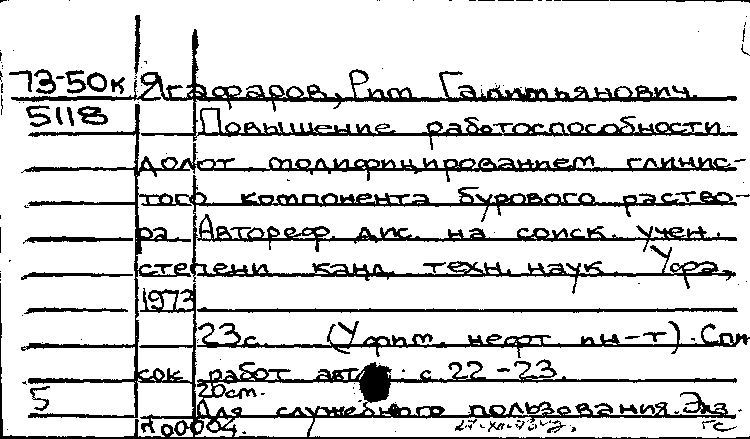 73-50к Ягафаров, Рит
5118 Повышение работоспособности
долот модифицированием глинис-
того компонента бурового раство-
ра Автореф. дис. на соиск. учен.
степени канд. техн. наук. Уфа,
1973
23с. (Уфим. нефт. ин-т). Спи
сок работ авт с. 22-23.
5 20см.
Для служебного пользования. Экз.
N 00004.